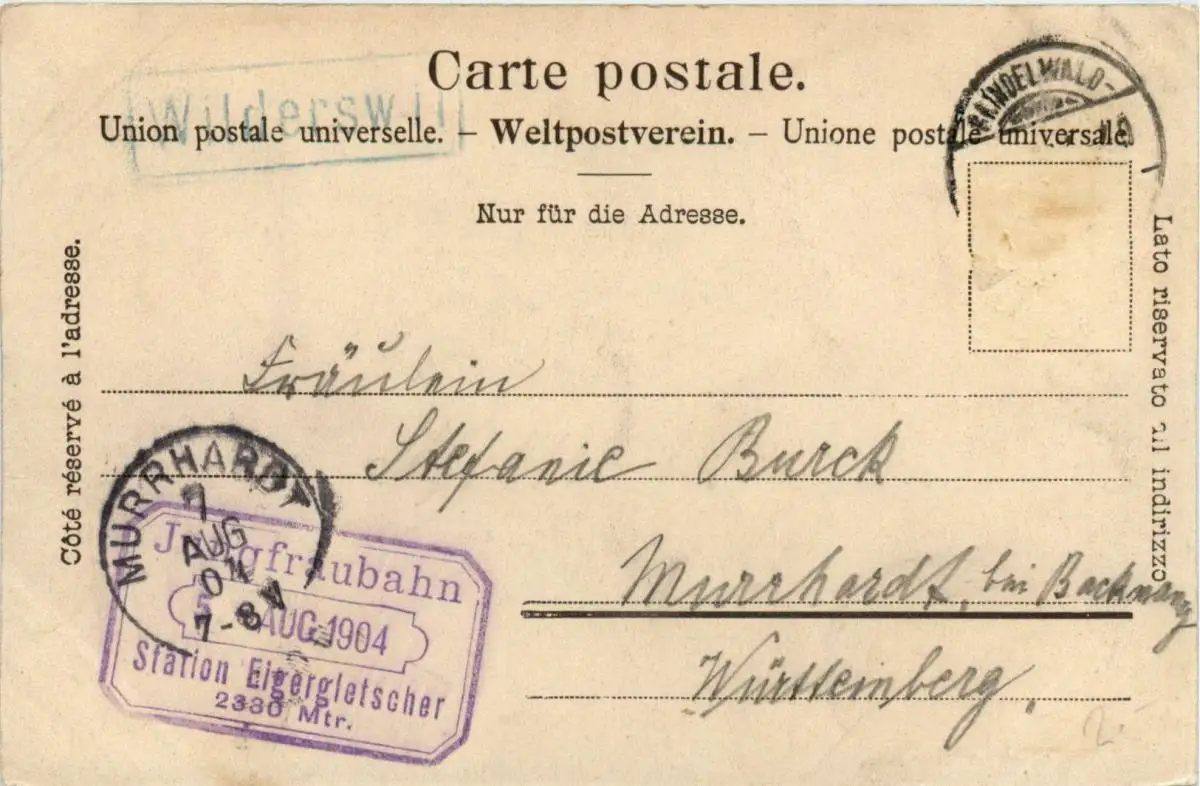 Carte postale.
Wilderswil
GRINDELWALD-
Union postale universelle. – Weltpostverein. – Unione postale universale.
Nur für die Adresse.
Côté réservé à l'adresse.
Lato riservato all indirizzo
Fräulein
Stefanie Burck
Murrhardt, bei Backnang
Württemberg.
MURRHARDT
7
AUG
04
7-8 V
Jungfraubahn
5 AUG 1904
Station Eigergletscher
2330 Mtr.
2.-